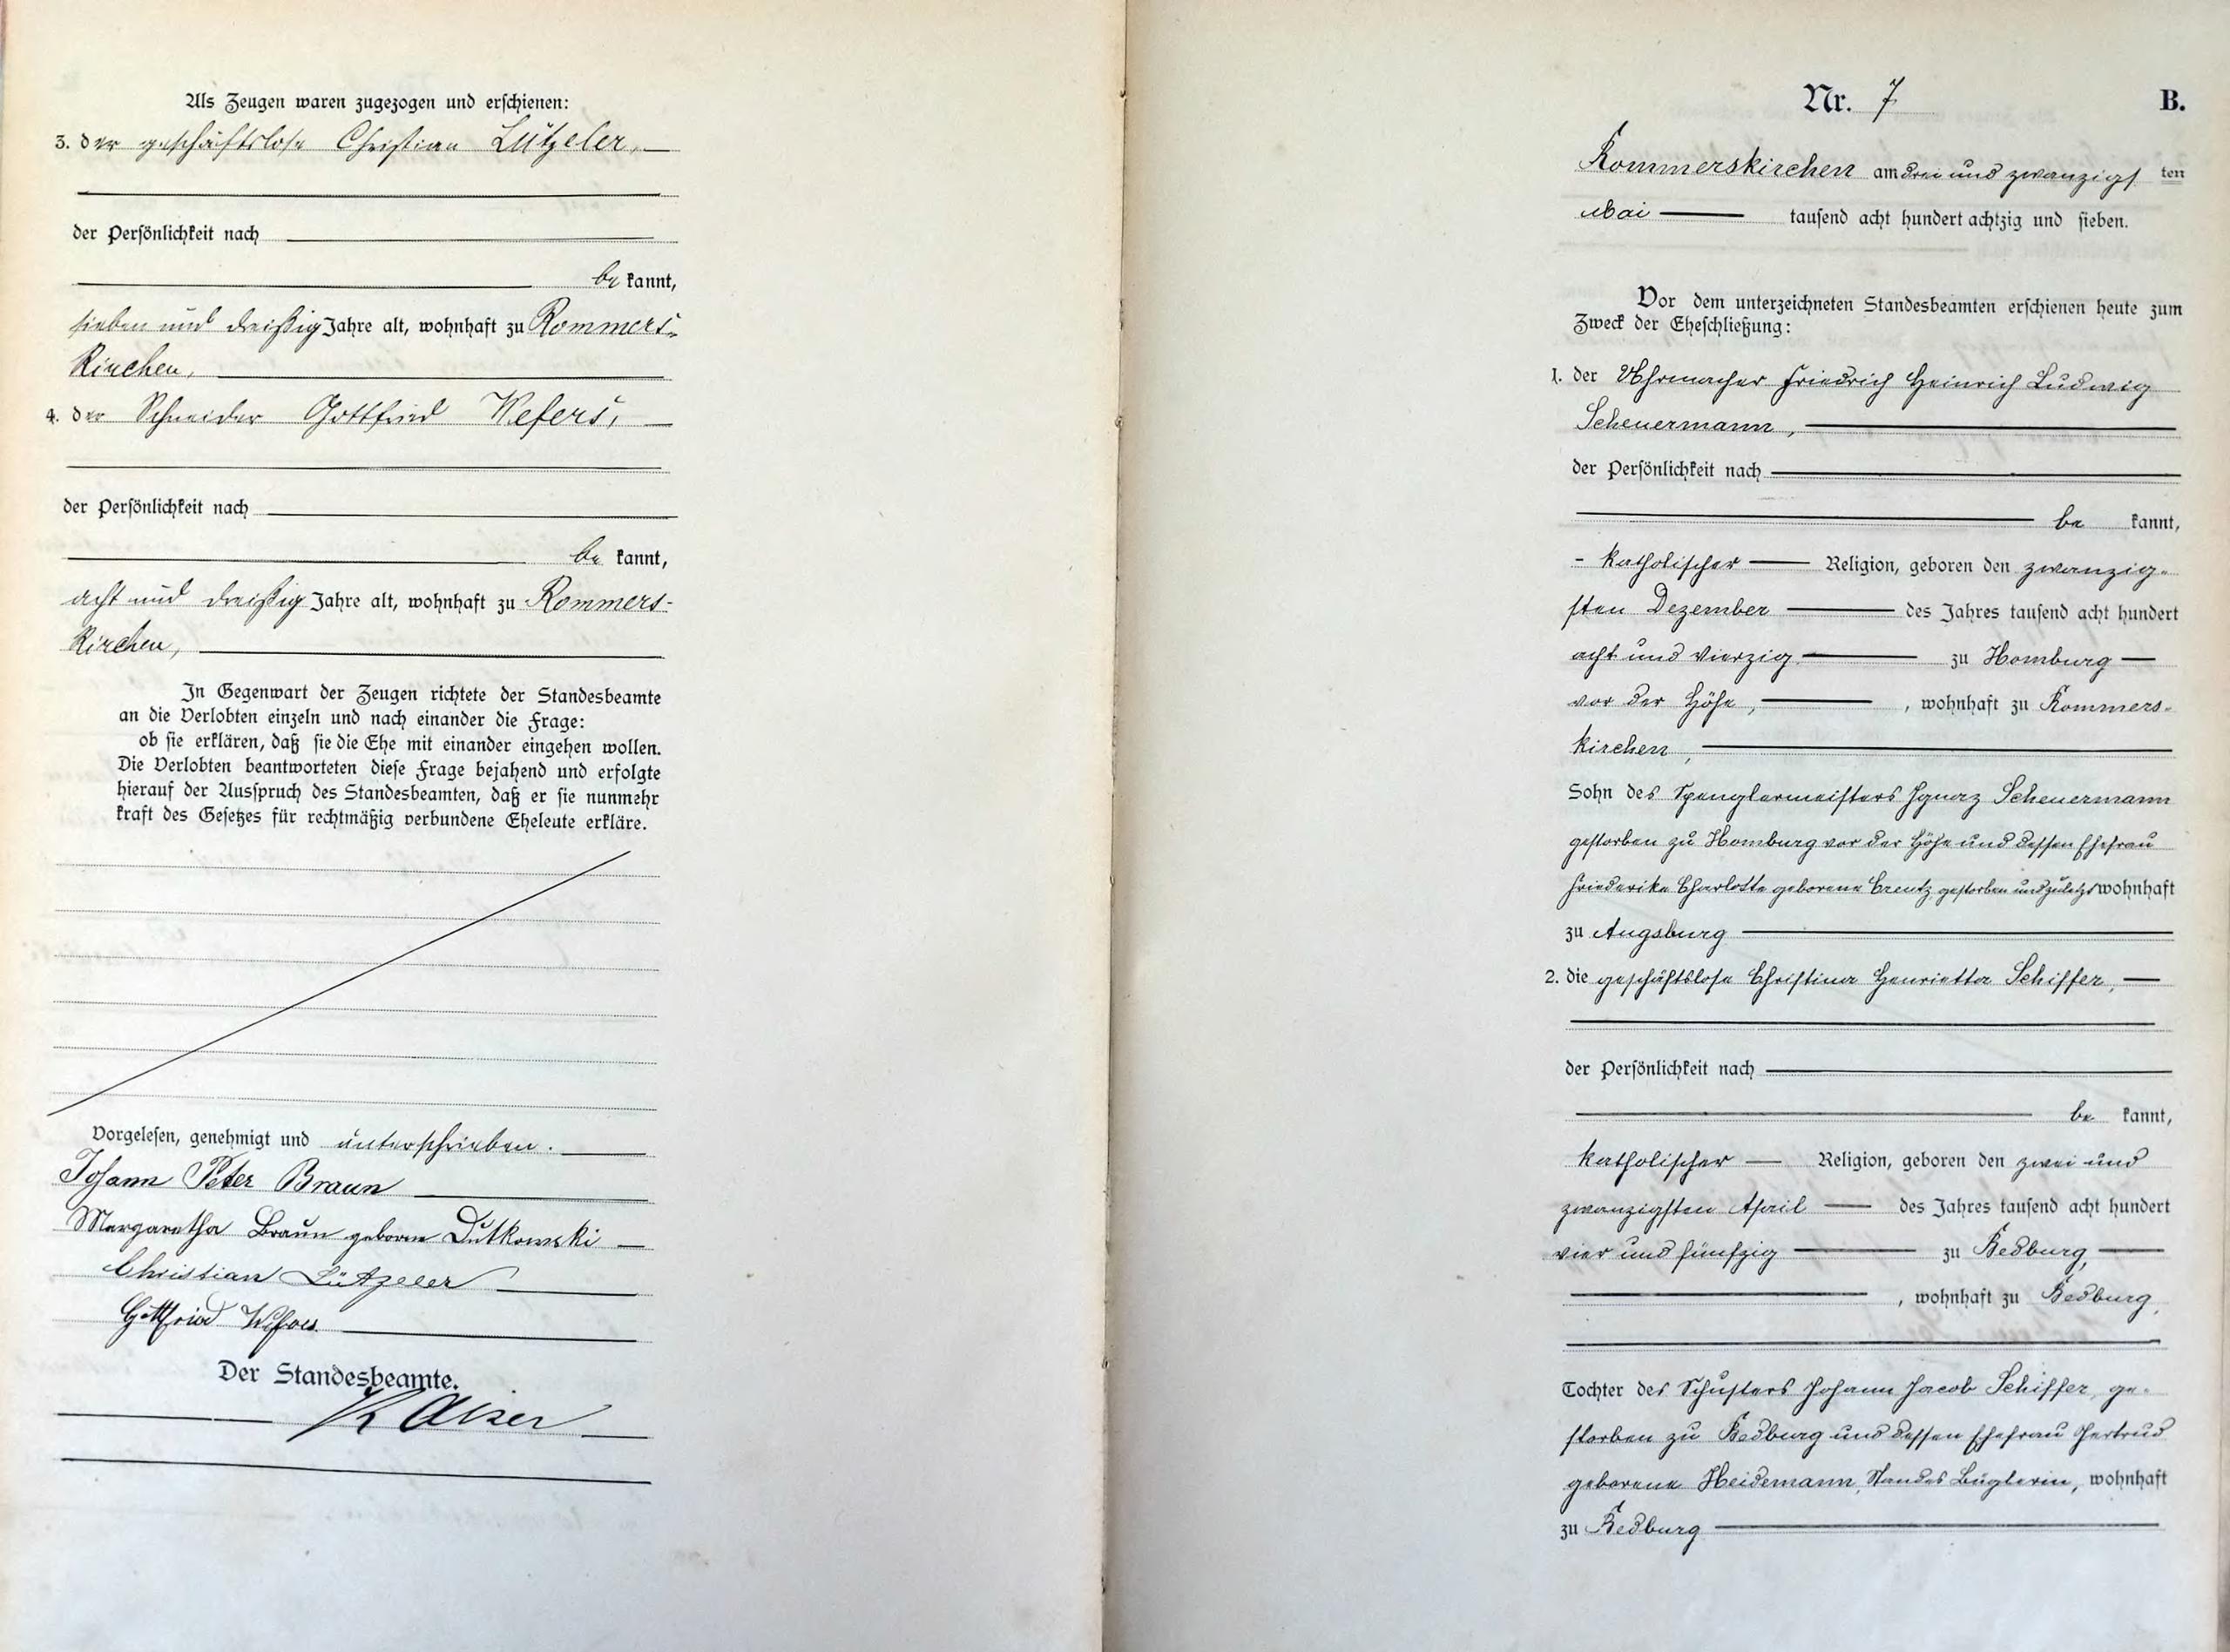 Als Zeugen waren zugezogen und erschienen:
3. der geschäftslose Christian Lützeler,
der Persönlichkeit nach
be kannt,
sieben und dreißig Jahre alt, wohnhaft zu Rommers-
kirchen,
4. der Schneider Gottfried Wefers,
der Persönlichkeit nach
be kannt,
acht und dreißig Jahre alt, wohnhaft zu Rommers-
kirchen,
In Gegenwart der Zeugen richtete der Standesbeamte
an die Verlobten einzeln und nach einander die Frage:
ob sie erklären, daß sie die Ehe mit einander eingehen wollen.
Die Verlobten beantworteten diese Frage bejahend und erfolgte
hierauf der Ausspruch des Standesbeamten, daß er sie nunmehr
kraft des Gesetzes für rechtmäßig verbundene Eheleute erkläre.
Vorgelesen, genehmigt und unterschrieben.
Johann Peter Braun
Margaretha Braun geborne Dutkowski
Christian Lützeler
Gottfried Wefers
Der Standesbeamte.
Kaiser
Nr. 7
B.
Rommerskirchen am drei und zwanzigsten
Mai tausend acht hundert achtzig und sieben.
Vor dem unterzeichneten Standesbeamten erschienen heute zum
Zweck der Eheschließung:
1. der Uhrmacher Friedrich Heinrich Ludwig
Scheuermann,
der Persönlichkeit nach
be kannt,
- katholischer Religion, geboren den zwanzig-
sten Dezember des Jahres tausend acht hundert
acht und vierzig zu Homburg
vor der Höhe, , wohnhaft zu Rommers-
kirchen,
Sohn des Spenglermeisters Ignaz Scheuermann
gestorben zu Homburg vor der Höhe und dessen Ehefrau
Friederike Charlotte geborene Creutz, gestorben und zuletzt wohnhaft
zu Augsburg
2. die geschäftslose Christina Henrietta Schiffer,
der Persönlichkeit nach
be kannt,
katholischer Religion, geboren den zwei und
zwanzigsten April des Jahres tausend acht hundert
vier und fünfzig zu Bedburg,
, wohnhaft zu Bedburg,
Tochter des Schusters Johann Jacob Schiffer, ge-
storben zu Bedburg und dessen Ehefrau Gertrud
geborene Heidemann, Standes Büglerin, wohnhaft
zu Bedburg